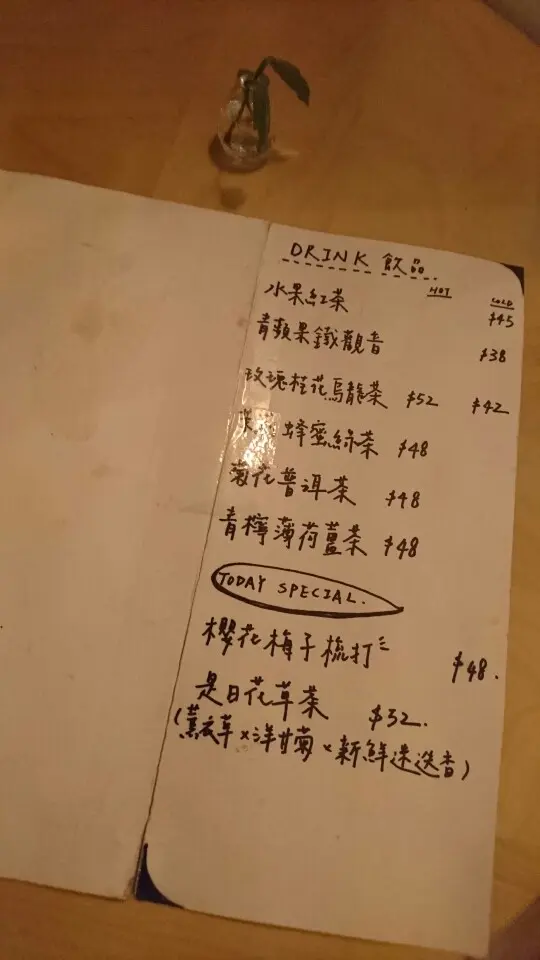 DRINK 飲品.
HOT COLD
水果紅茶 $45
青蘋果鐵觀音 $38
玫瑰桂花烏龍茶 $52 $42
蜂蜜綠茶 $48
菊花普洱茶 $48
青檸薄荷薑茶 $48
TODAY SPECIAL.
櫻花梅子梳打 $48.
是日花草茶 $32.
(薰衣草x洋甘菊x新鮮迷迭香)